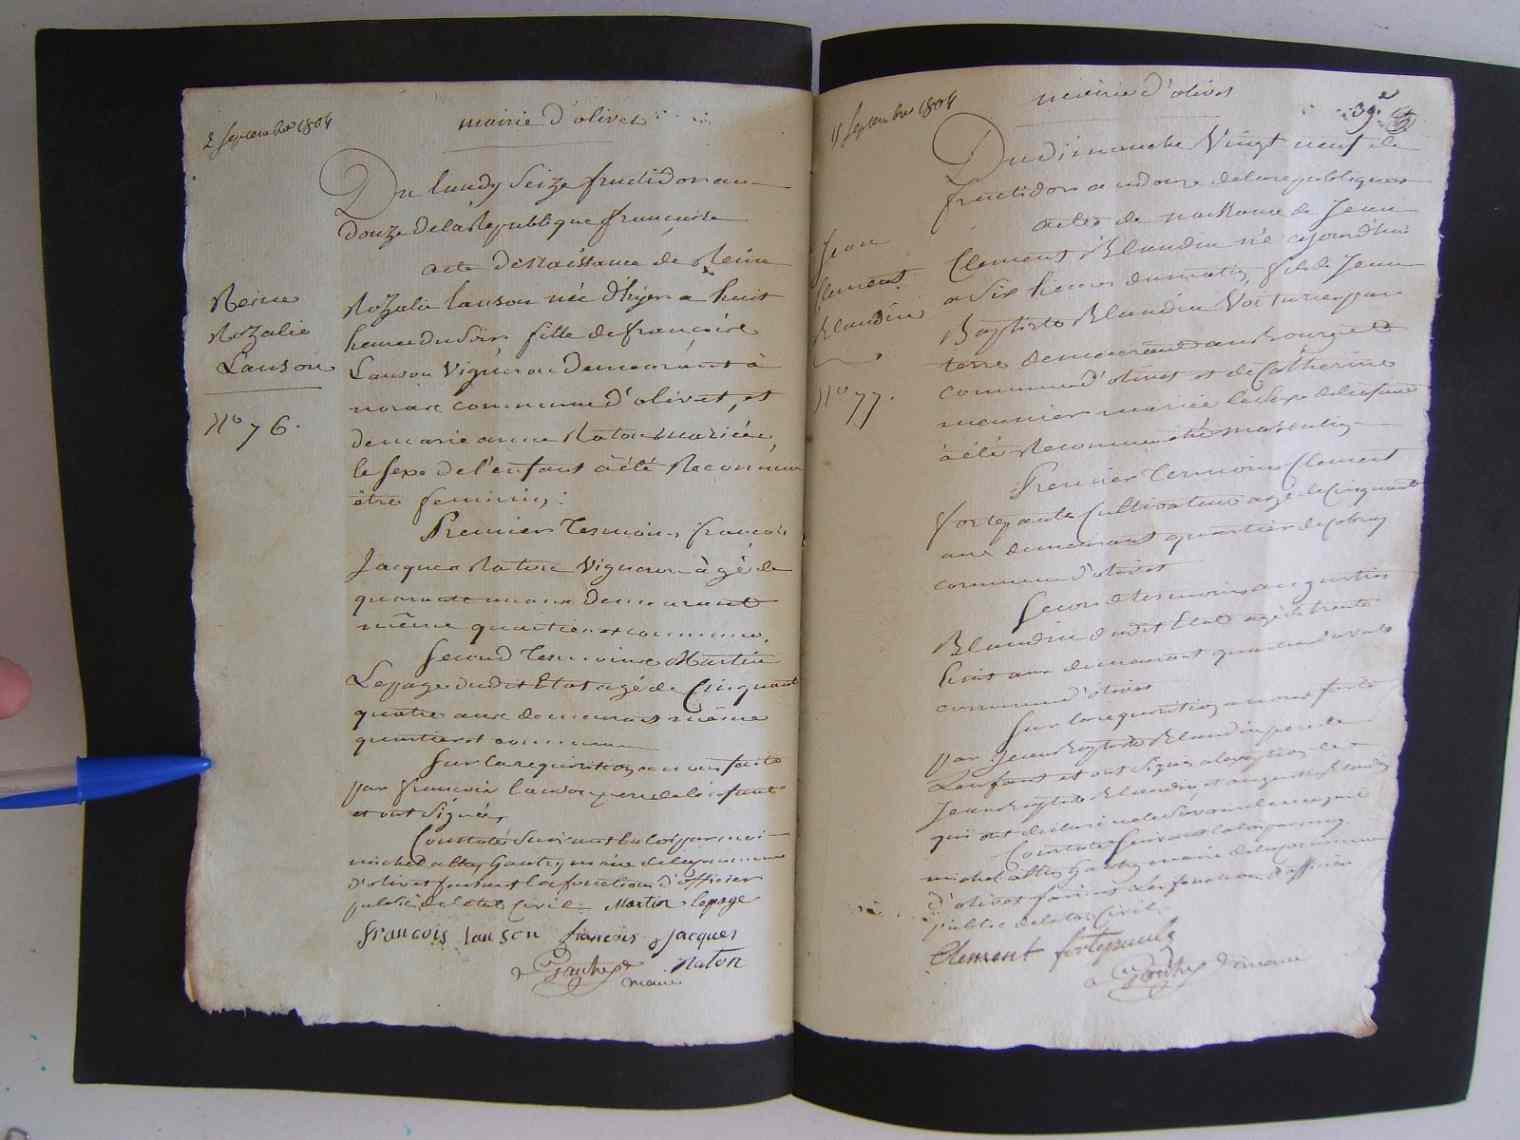 2 Septembre 1804
mairie d'olivet
Du lundy Seize fructidor an
douze de la Republique francaise
acte de Naissance de Reine
Reine
Rozalie
Lanson
No 76.
Rozalie lanson née d'hyer a huit
heure du Soir fille de francoise
Lanson Vigneron Demeurant à
commune d'olivet, et
de marie anne Naton mariée,
le sexe de l'enfant à été Reconnu
être feminin;
Premier Tesmoins francois
Jacques Naton Vigneron àgé de
quarante un ans Demeurant
même quartier et commune,
Second Tesmoins Martin
Lepage dudit Etat agé de Cinquante
quatre ans demeurant même
quartier et commune
Sur la requisition a nous faite
par francois lanson pere de lenfant
et ont Signé,
Constaté Suivant la loy par moi
michel altay Gautry maire de la commune
d'olivet faisant les fonction d'officier
public de l'etat Civil. Martin lepage
francois lanson francois jacques
naton
maire
15 Septembre 1804
mairie d'olivet
39.e
Du dimanche Vingt neuf de
fructidor an douze de la republique
acte de naissance de Jean
Jean
Clement
Blandin
No 77.
Clement Blandin né ajourdhui
a Six heures du matin, fils de Jean
Baptiste Blandin Voiturier par
terre demeurant au bourg et
commune d'olivet et de Catherine
meunier mariée le Sexe de lenfant
à été Reconnu être masculin
Premier Tesmoins Clement
fortepaule Cultivateur agé de Cinquante
ans demeurant quartier de
commune d'olivet
Second tesmoins augustin
Blandin dudit Etat agé de trente
huit ans demeurant
commune d'olivet
Sur la requisition a nous faite
par Jean Baptiste Blandin pere de
Lenfant et ont Signé a lexeption de
Jean Baptiste Blandin et augustin Blandin
qui ont declaré ne le Savoir
Constaté Suivant la loy par moy
michel altay Gautry maire de la commune
d'olivet faisant les fonction d'officier
public de letat Civil
Clement fortepaule
maire